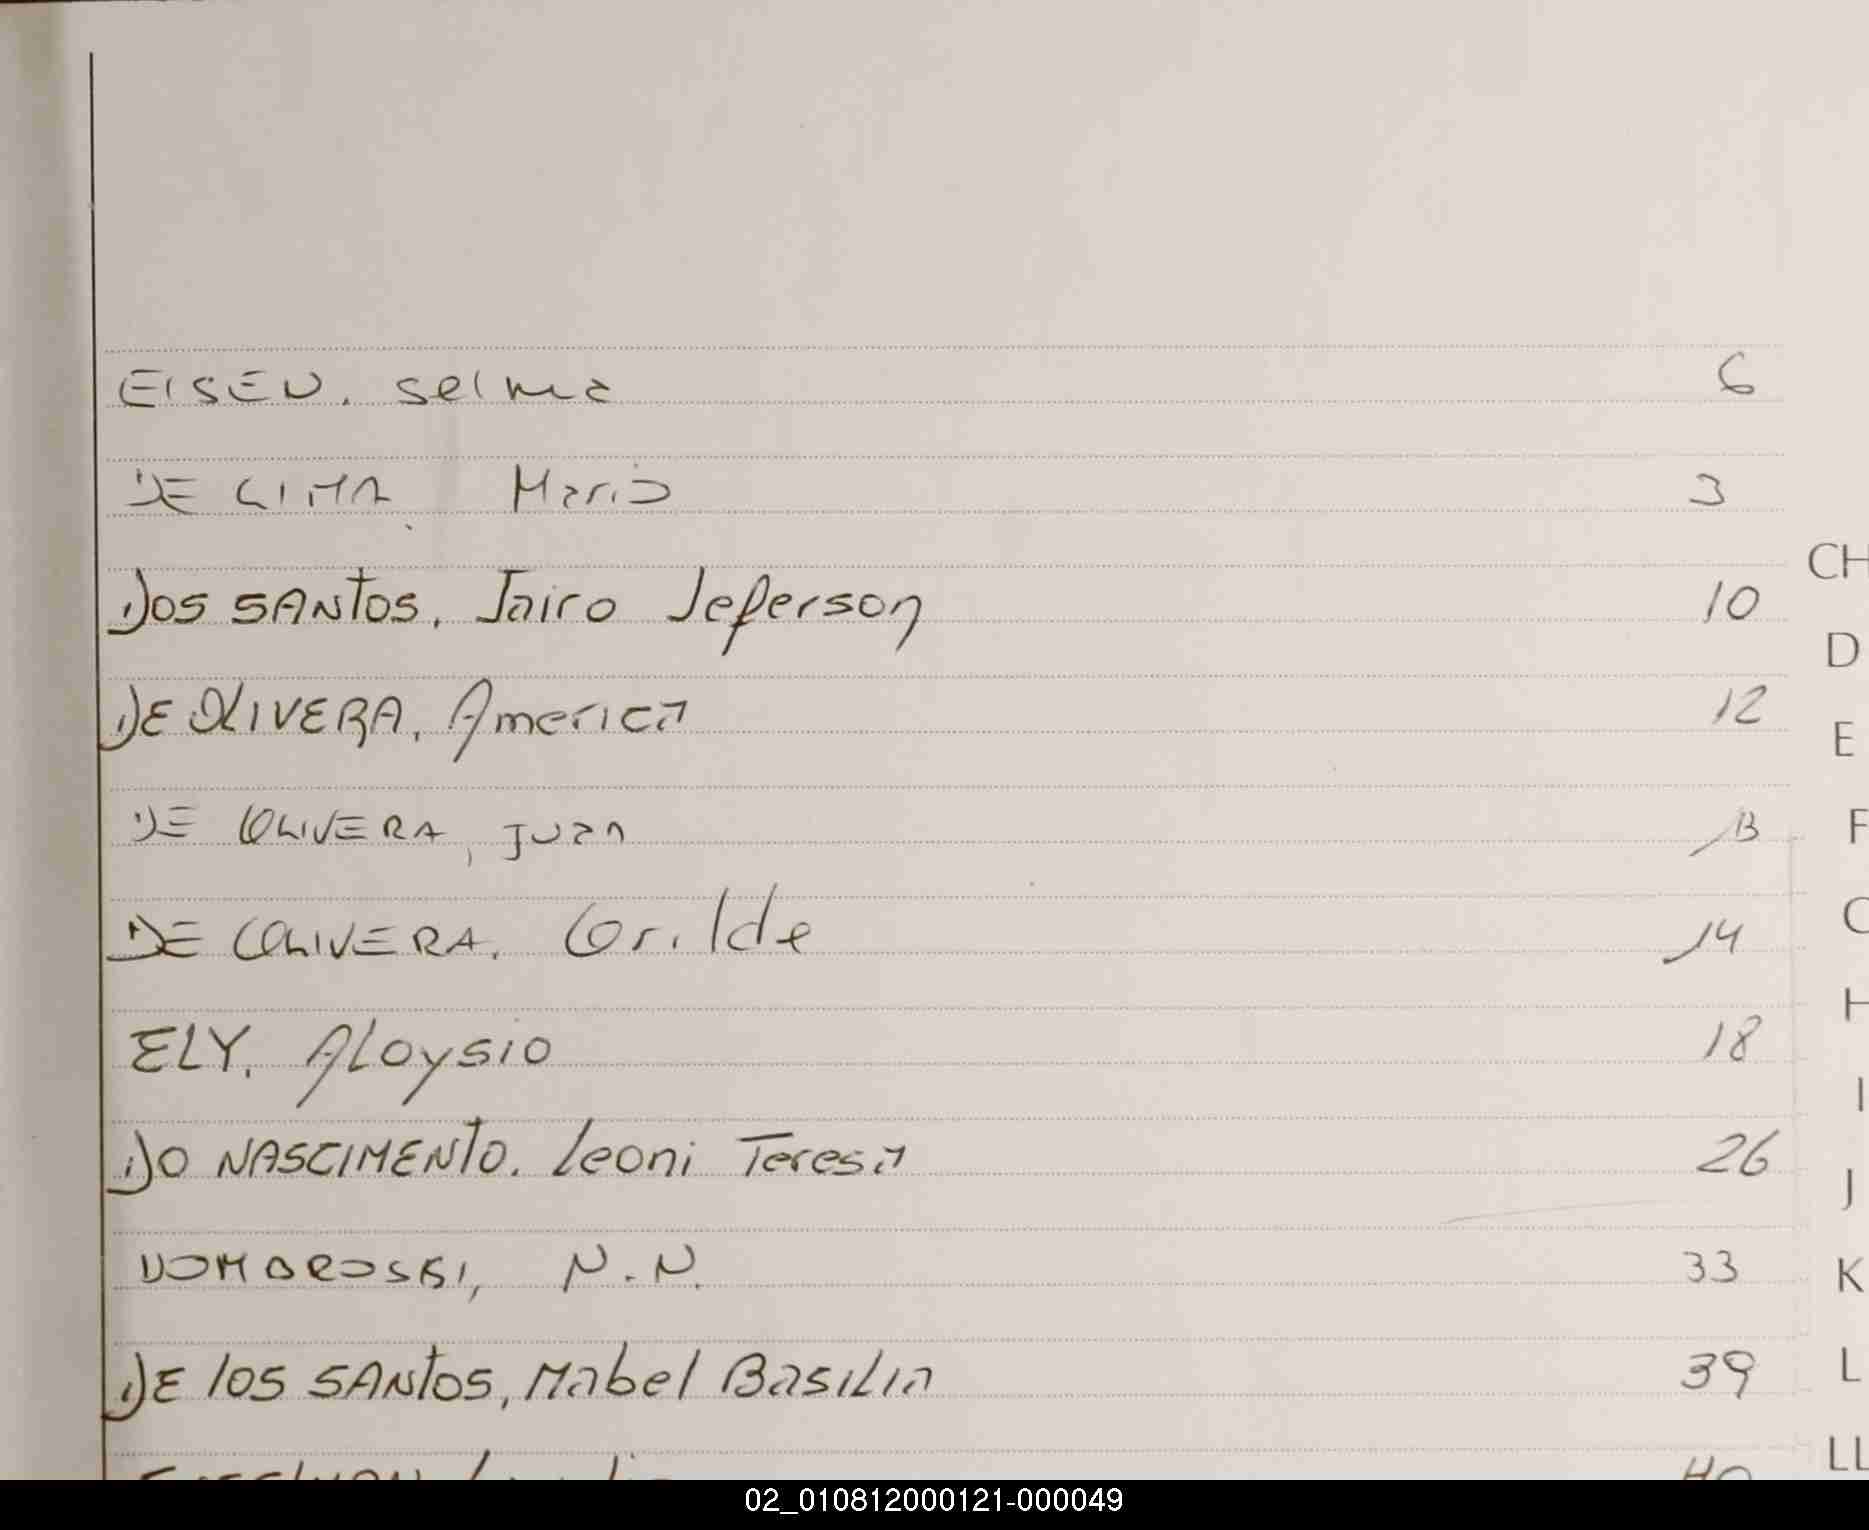 EISEN, Selma 6
DE LIMA, Mario 3
DOS SANTOS, Jairo Jeferson 10
DE OLIVERA, America 12
DE OLIVERA, Juan 13
DE OLIVERA, Orilde 14
ELY, Aloysio 18
DO NASCIMENTO, Leoni Teresa 26
DOMBROSKI, N.N. 33
DE los SANTOS, Mabel Basilia 39
40
CH
D
E
F
H
I
J
K
L
LL
02_010812000121-000049